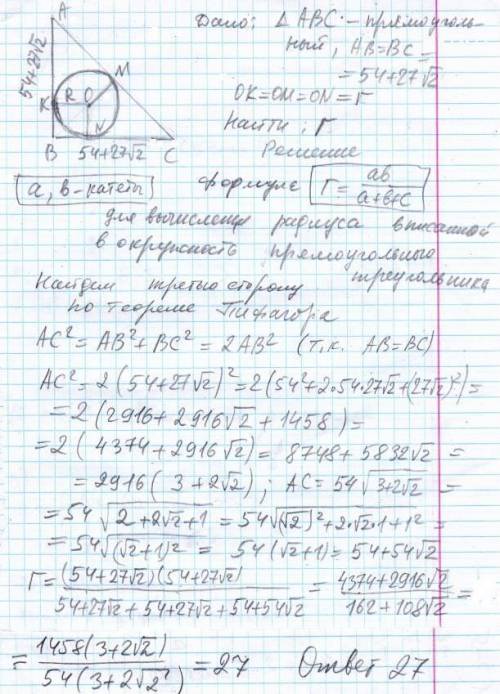 A
54+27√2
K R O M
N
B 54+27√2 C
Дано: △ABC - прямоуголь-
ный, AB=BC=
=54+27√2
OK=OM=ON=r
Найти: r
Решение
a, b-катеты формуле r=ab/(a+b+c)
для вычисления радиуса вписанной
в окружность прямоугольного
треугольника
Найдем третью сторону
по теореме Пифагора
AC²=AB²+BC²=2AB² (т.к. AB=BC)
AC²=2(54+27√2)²=2(54²+2·54·27√2+(27√2)²)=
=2(2916+2916√2+1458)=
=2(4374+2916√2)=8748+5832√2=
=2916(3+2√2); AC=54√(3+2√2)=
=54√(2+2√2+1)=54√((√2)²+2·√2·1+1²)=
=54√((√2+1)²)=54(√2+1)=54+54√2
r=(54+27√2)(54+27√2)/(54+27√2+54+27√2+54+54√2)=(4374+2916√2)/(162+108√2)=
=1458(3+2√2)/54(3+2√2²)=27 Ответ 27